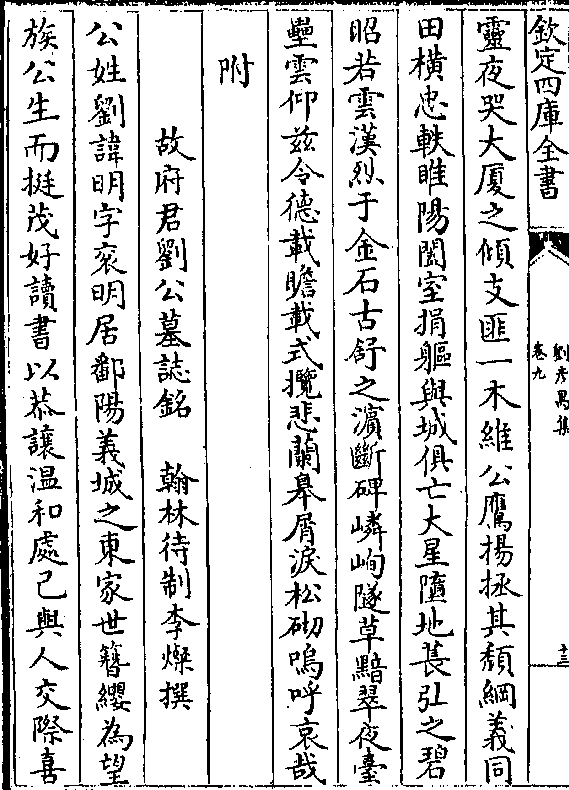 欽定四庫全書
劉彥昺集
卷九
十三
靈夜哭大厦之傾支匪一木維公鷹揚拯其頽綱義同
田横忠軼睢陽闔室捐軀與城俱亡大星隕地萇弘之碧
昭若雲漢烈于金石古舒之濵斷碑嶙峋隧草黯翠夜臺
壘雲仰兹令德載瞻載式攬悲蘭皋屑淚松砌嗚呼哀哉
附
故府君劉公墓誌銘　翰林待制李燦撰
公姓劉諱明字衮明居鄱陽義城之東家世簪纓為望
族公生而挺茂好讀書以恭讓温和處己與人交際喜